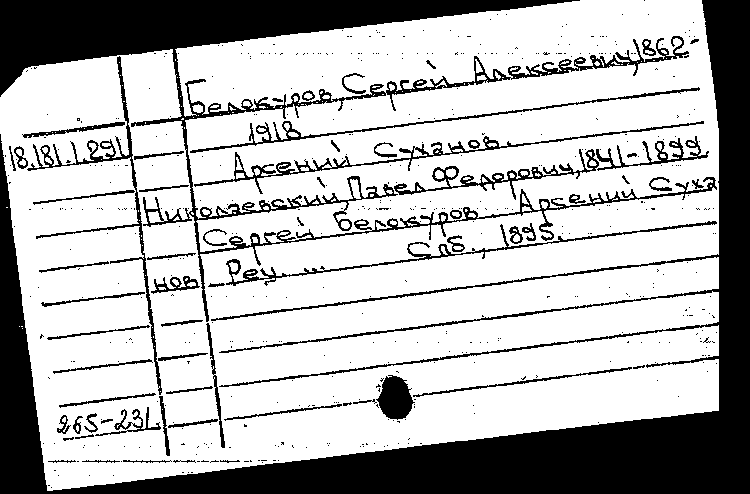 Белокуров, Сергей Алексеевич, 1862-
1918.
18.181.1.291.
Арсений Суханов.
Николаевский, Павел Федорович, 1841-1899.
Сергей Белокуров. Арсений Суха
нов Рец. ... Спб., 1895.
265-231.